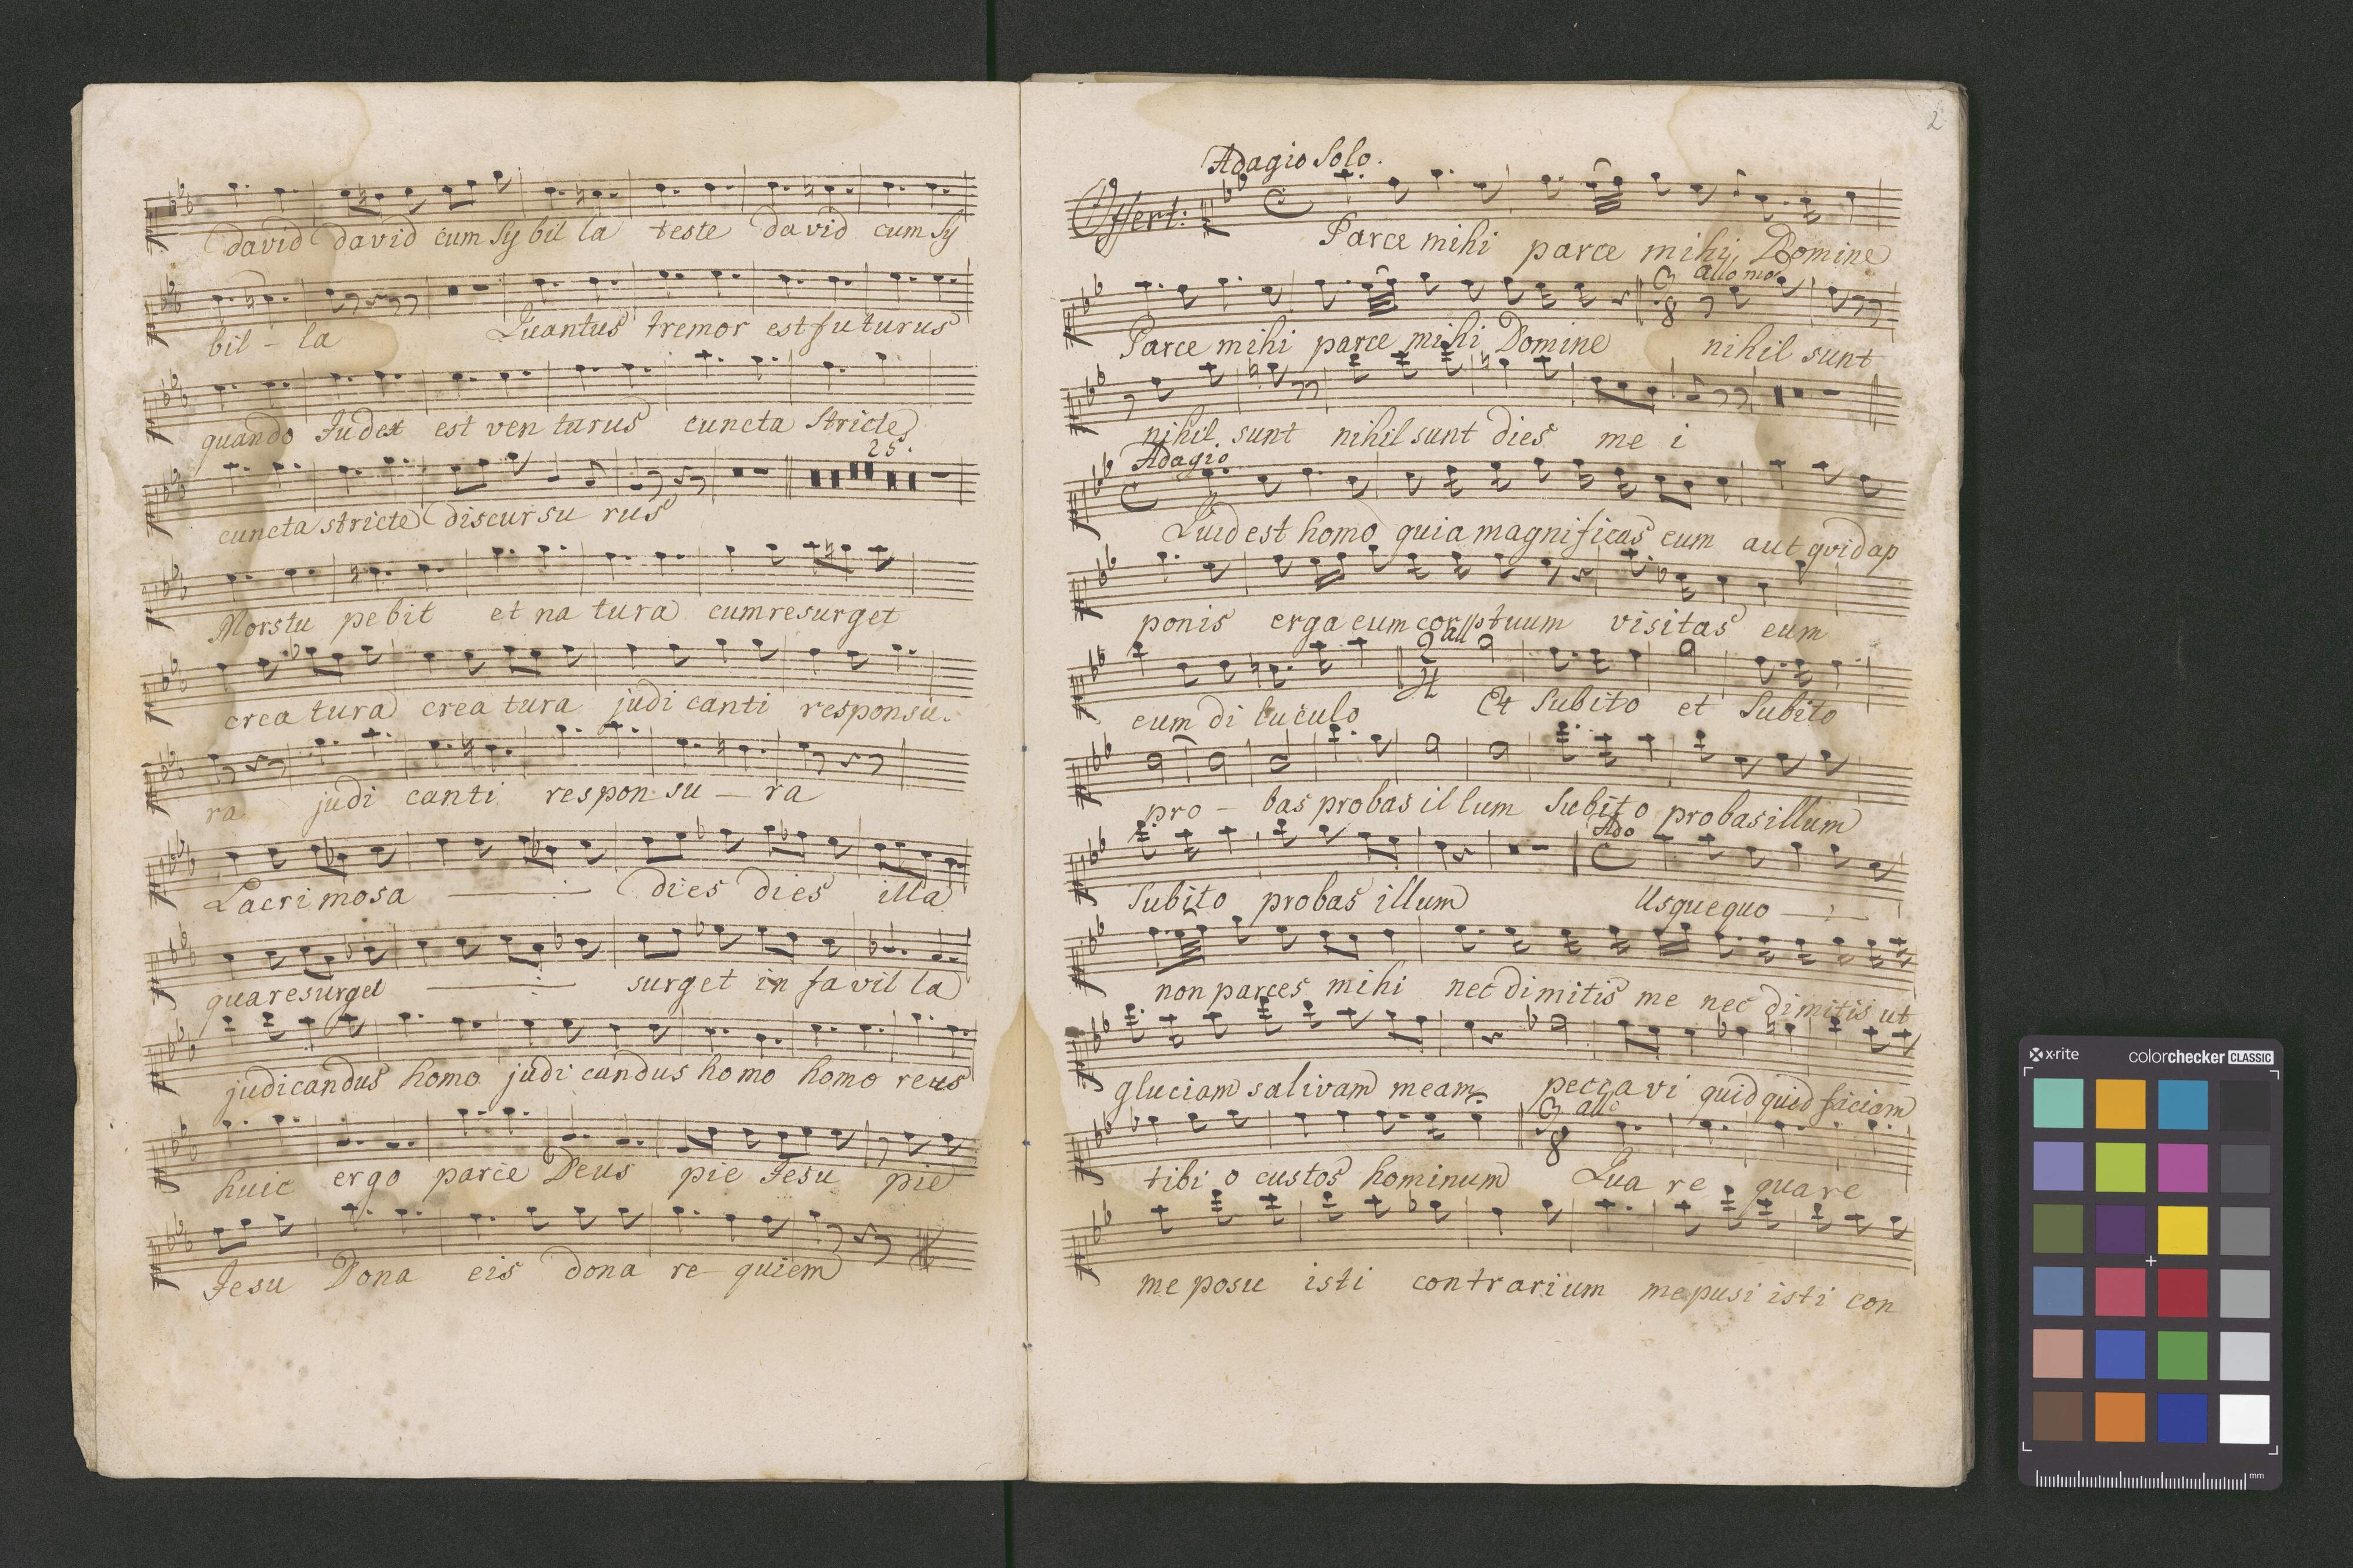 david david cum Sy bil la teste david cum Sy
bil - la Quantus tremor est futurus
quando Judex est ven turus cuncta Stricte
25.
cuncta stricte discursu rus
Mors stu pebit et na tura cum resurget
crea tura crea tura judi canti responsu.
ra judi canti respon su - ra
Lacri mosa dies dies illa
qua resurget surget in fa vil la
judicandus homo judi candus ho mo homo reus
huic ergo parce Deus pie Jesu pie
Jesu Dona eis dona re quiem
2
Adagio Solo.
Offert: C
Parce mihi parce mihi Domine
3 8 allo mo
Parce mihi parce mihi Domine nihil sunt
nihil sunt nihil sunt dies me i
Adagio
C
Quid est homo quia magnificas eum aut qvid ap
ponis erga eum cor tuum visitas eum
2 4 all
eum di luculo Et Subito et Subito
pro - bas probas il lum Subito probas illum
Ado
C
Subito probas illum Usquequo
non parces mihi nec dimitis me nec dimitis ut
gluciam salivam meam peccavi quid quid faciam
3 8 allo
tibi o custos hominum Qua re quare
me posu isti contrarium me pusi isti con
x·rite colorchecker CLASSIC
mm